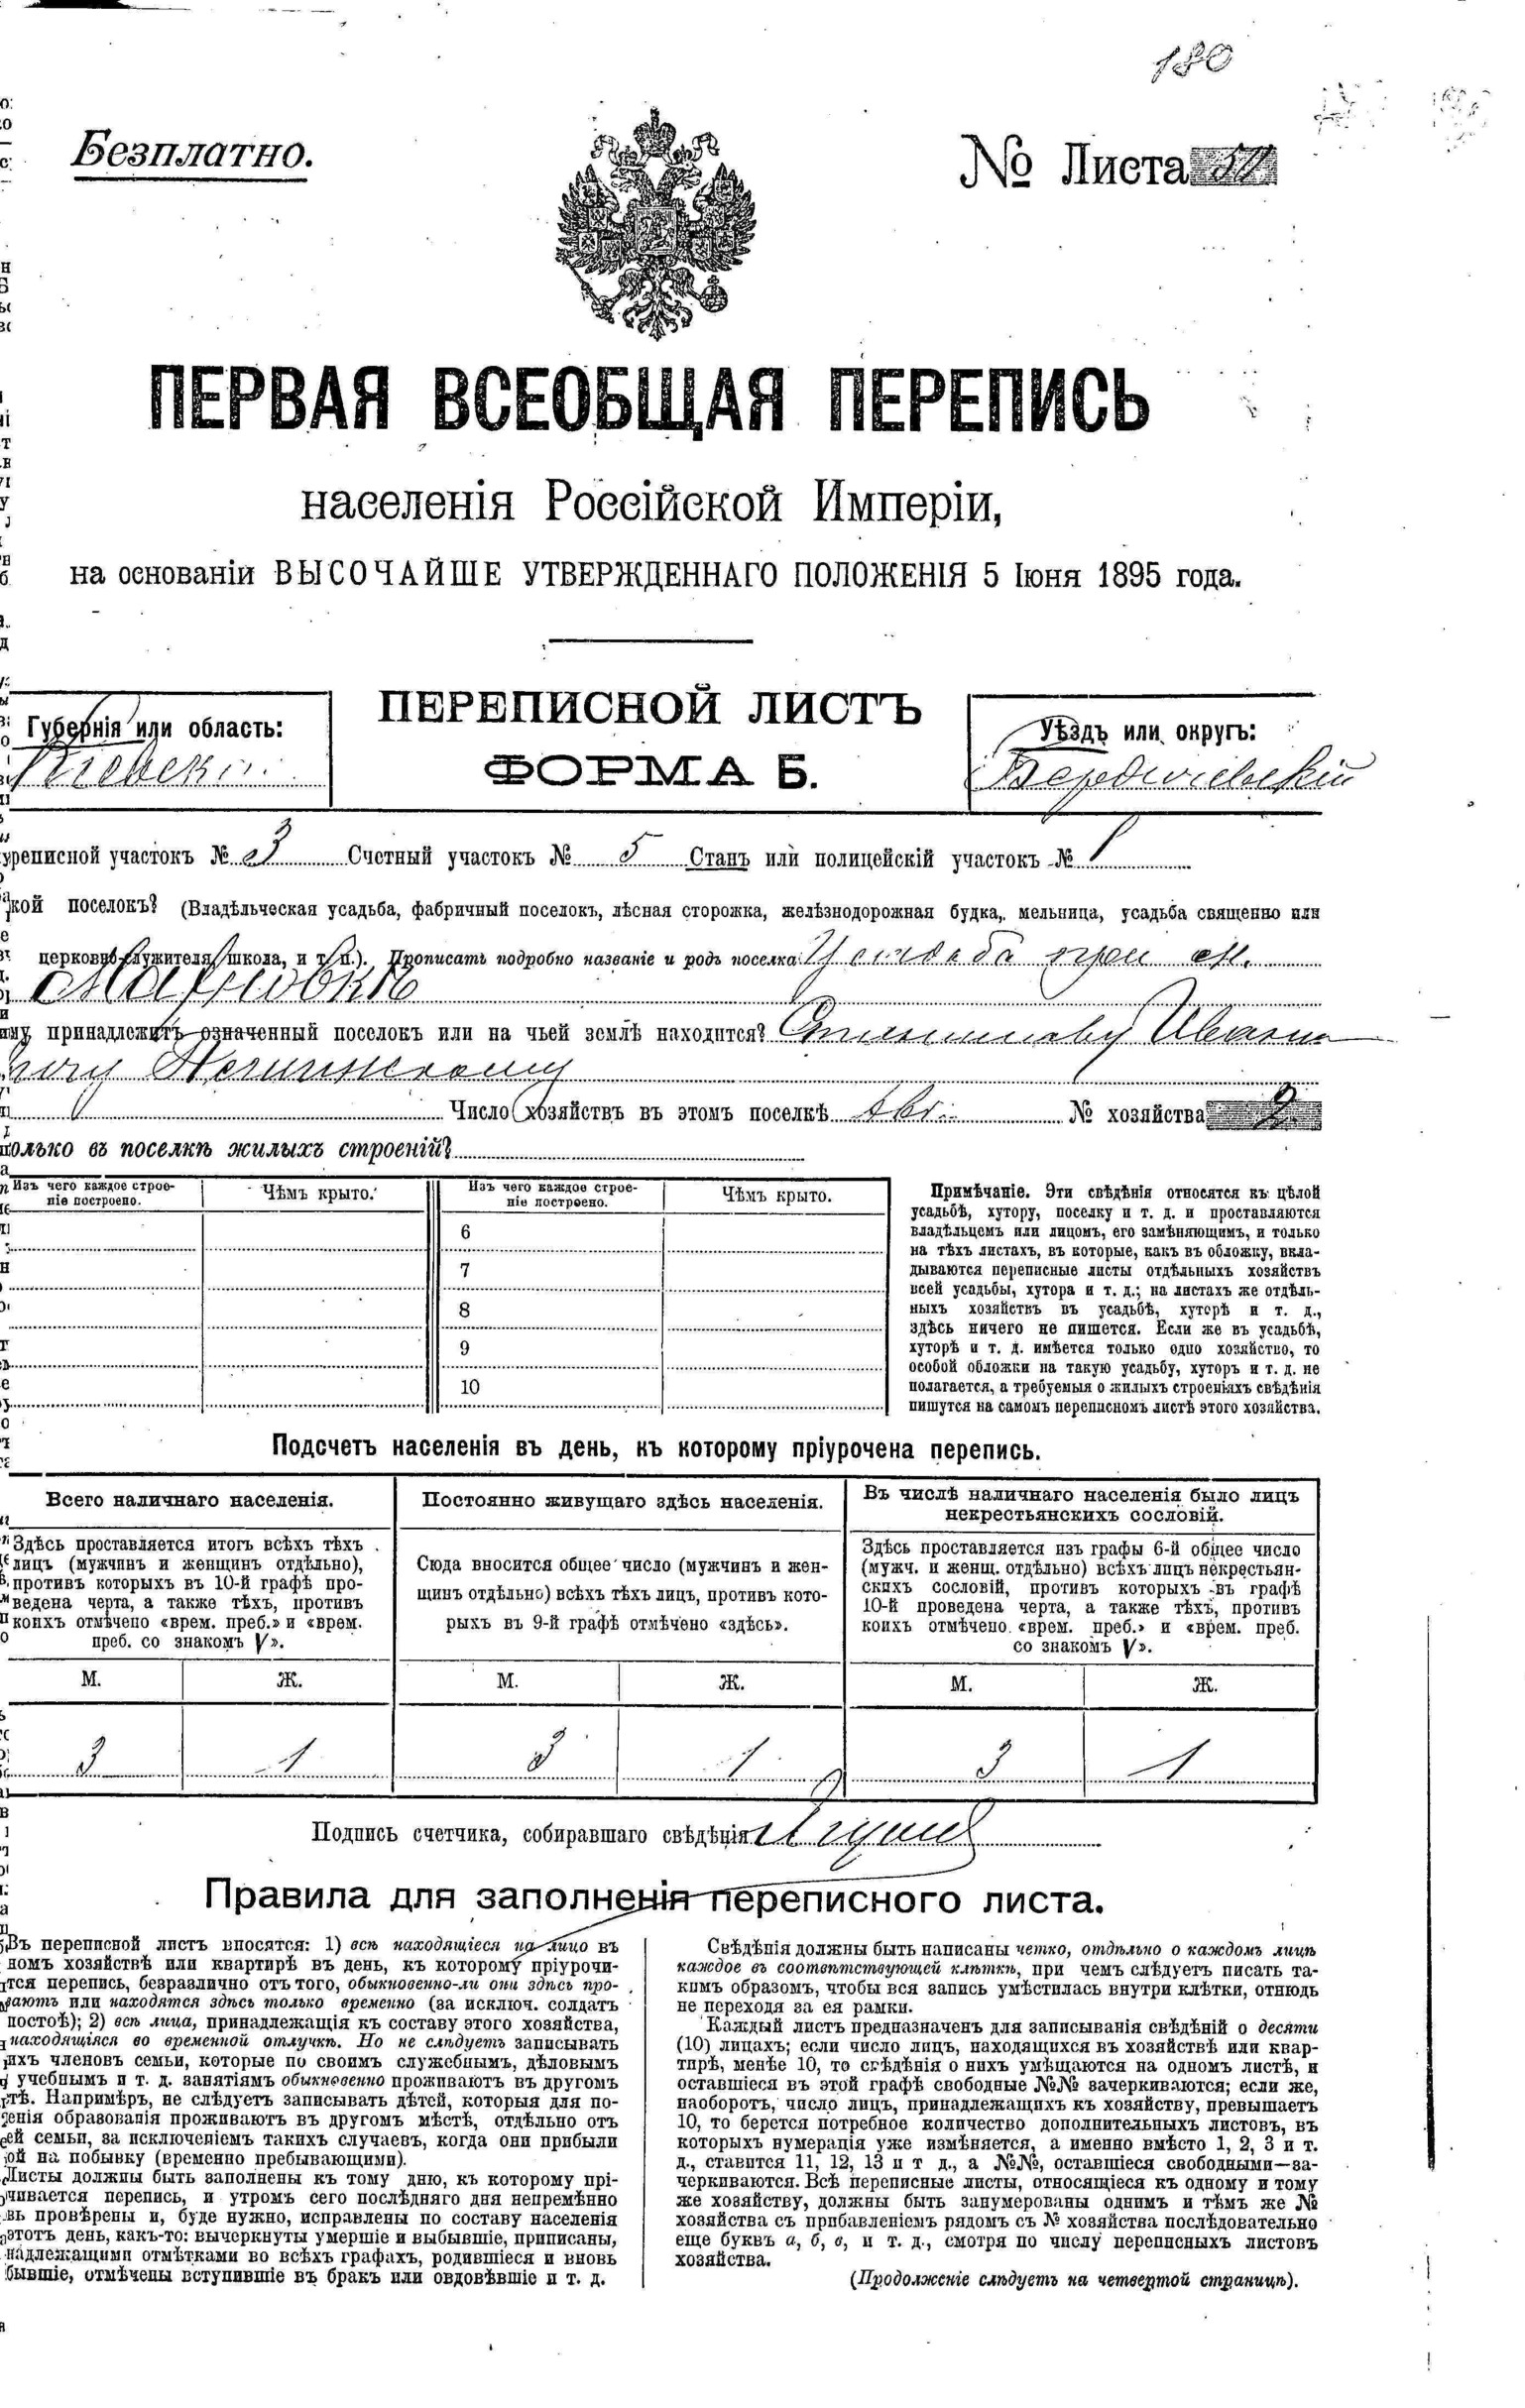 180
Безплатно.
№ Листа 50
ПЕРВАЯ ВСЕОБЩАЯ ПЕРЕПИСЬ
населенія Россійской Имперіи,
на основаніи ВЫСОЧАЙШЕ УТВЕРЖДЕННАГО ПОЛОЖЕНІЯ 5 Іюня 1895 года.
Губернія или область:
Кіевск
ПЕРЕПИСНОЙ ЛИСТЪ
ФОРМА Б.
Уѣздъ или округъ:
Бердичевскій
реписной участокъ № 3 Счетный участокъ № 5 Станъ или полицейскій участокъ № 1
кой поселокъ? (Владѣльческая усадьба, фабричный поселокъ, лѣсная сторожка, желѣзнодорожная будка, мельница, усадьба священно или
церковно-служителя, школа, и т. п.). Прописать подробно названіе и родъ поселка Усадьба при м.
Махновкѣ
му принадлежитъ означенный поселокъ или на чьей землѣ находится? Ивано
вичу
Число хозяйствъ въ этомъ поселкѣ два № хозяйства 2
олько въ поселкѣ жилыхъ строеній?
Изъ чего каждое строе-
ніе построено.
Чѣмъ крыто.
Изъ чего каждое строе-
ніе построено.
Чѣмъ крыто.
6
7
8
9
10
Примѣчаніе. Эти свѣдѣнія относятся къ цѣлой
усадьбѣ, хутору, поселку и т. д. и проставляются
владѣльцемъ или лицомъ, его замѣняющимъ, и только
на тѣхъ листахъ, въ которые, какъ въ обложку, вкла-
дываются переписные листы отдѣльныхъ хозяйствъ
всей усадьбы, хутора и т. д.; на листахъ же отдѣль-
ныхъ хозяйствъ въ усадьбѣ, хуторѣ и т. д.,
здѣсь ничего не пишется. Если же въ усадьбѣ,
хуторѣ и т. д. имѣется только одно хозяйство, то
особой обложки на такую усадьбу, хуторъ и т. д. не
полагается, а требуемыя о жилыхъ строеніяхъ свѣдѣнія
пишутся на самомъ переписномъ листѣ этого хозяйства.
Подсчетъ населенія въ день, къ которому пріурочена перепись.
Всего наличнаго населенія.
Здѣсь проставляется итогъ всѣхъ тѣхъ
лицъ (мужчинъ и женщинъ отдѣльно),
противъ которыхъ въ 10-й графѣ про-
ведена черта, а также тѣхъ, противъ
коихъ отмѣчено «врем. преб.» и «врем.
преб. со знакомъ V».
Постоянно живущаго здѣсь населенія.
Сюда вносится общее число (мужчинъ и жен-
щинъ отдѣльно) всѣхъ тѣхъ лицъ, противъ кото-
рыхъ въ 9-й графѣ отмѣчено «здѣсь».
Въ числѣ наличнаго населенія было лицъ
некрестьянскихъ сословій.
Здѣсь проставляется изъ графы 6-й общее число
(мужч. и женщ. отдѣльно) всѣхъ лицъ некрестьян-
скихъ сословій, противъ которыхъ въ графѣ
10-й проведена черта, а также тѣхъ, противъ
коихъ отмѣчено «врем. преб.» и «врем. преб.
со знакомъ V».
М. Ж. М. Ж. М. Ж.
3 1 3 1 3 1
Подпись счетчика, собиравшаго свѣдѣнія
Правила для заполненія переписного листа.
Въ переписной листъ вносятся: 1) всѣ находящіеся на лицо въ
номъ хозяйствѣ или квартирѣ въ день, къ которому пріурочи-
тся перепись, безразлично отъ того, обыкновенно-ли они здѣсь про-
ваютъ или находятся здѣсь только временно (за исключ. солдатъ
постоѣ); 2) всѣ лица, принадлежащія къ составу этого хозяйства,
находящіяся во временной отлучкѣ. Но не слѣдуетъ записывать
ихъ членовъ семьи, которые по своимъ служебнымъ, дѣловымъ
учебнымъ и т. д. занятіямъ обыкновенно проживаютъ въ другомъ
тѣ. Напримѣръ, не слѣдуетъ записывать дѣтей, которыя для по-
енія образованія проживаютъ въ другомъ мѣстѣ, отдѣльно отъ
ей семьи, за исключеніемъ такихъ случаевъ, когда они прибыли
ой на побывку (временно пребывающими).
Листы должны быть заполнены къ тому дню, къ которому прі-
чивается перепись, и утромъ сего послѣдняго дня непремѣнно
вь провѣрены и, буде нужно, исправлены по составу населенія
этотъ день, какъ-то: вычеркнуты умершіе и выбывшіе, приписаны,
надлежащими отмѣтками во всѣхъ графахъ, родившіеся и вновь
бывшіе, отмѣчены вступившіе въ бракъ или овдовѣвшіе и т. д.
Свѣдѣнія должны быть написаны четко, отдѣльно о каждомъ лицѣ
каждое въ соотвѣтствующей клѣткѣ, при чемъ слѣдуетъ писать та-
кимъ образомъ, чтобы вся запись умѣстилась внутри клѣтки, отнюдь
не переходя за ея рамки.
Каждый листъ предназначенъ для записыванія свѣдѣній о десяти
(10) лицахъ; если число лицъ, находящихся въ хозяйствѣ или квар-
тирѣ, менѣе 10, то свѣдѣнія о нихъ умѣщаются на одномъ листѣ, и
оставшіеся въ этой графѣ свободные №№ зачеркиваются; если же,
наоборотъ, число лицъ, принадлежащихъ къ хозяйству, превышаетъ
10, то берется потребное количество дополнительныхъ листовъ, въ
которыхъ нумерація уже измѣняется, а именно вмѣсто 1, 2, 3 и т.
д., ставится 11, 12, 13 и т д., а №№, оставшіеся свободными—за-
черкиваются. Всѣ переписные листы, относящіеся къ одному и тому
же хозяйству, должны быть занумерованы однимъ и тѣмъ же №
хозяйства съ прибавленіемъ рядомъ съ № хозяйства послѣдовательно
еще буквъ а, б, в, и т. д., смотря по числу переписныхъ листовъ
хозяйства.
(Продолженіе слѣдуетъ на четвертой страницѣ).